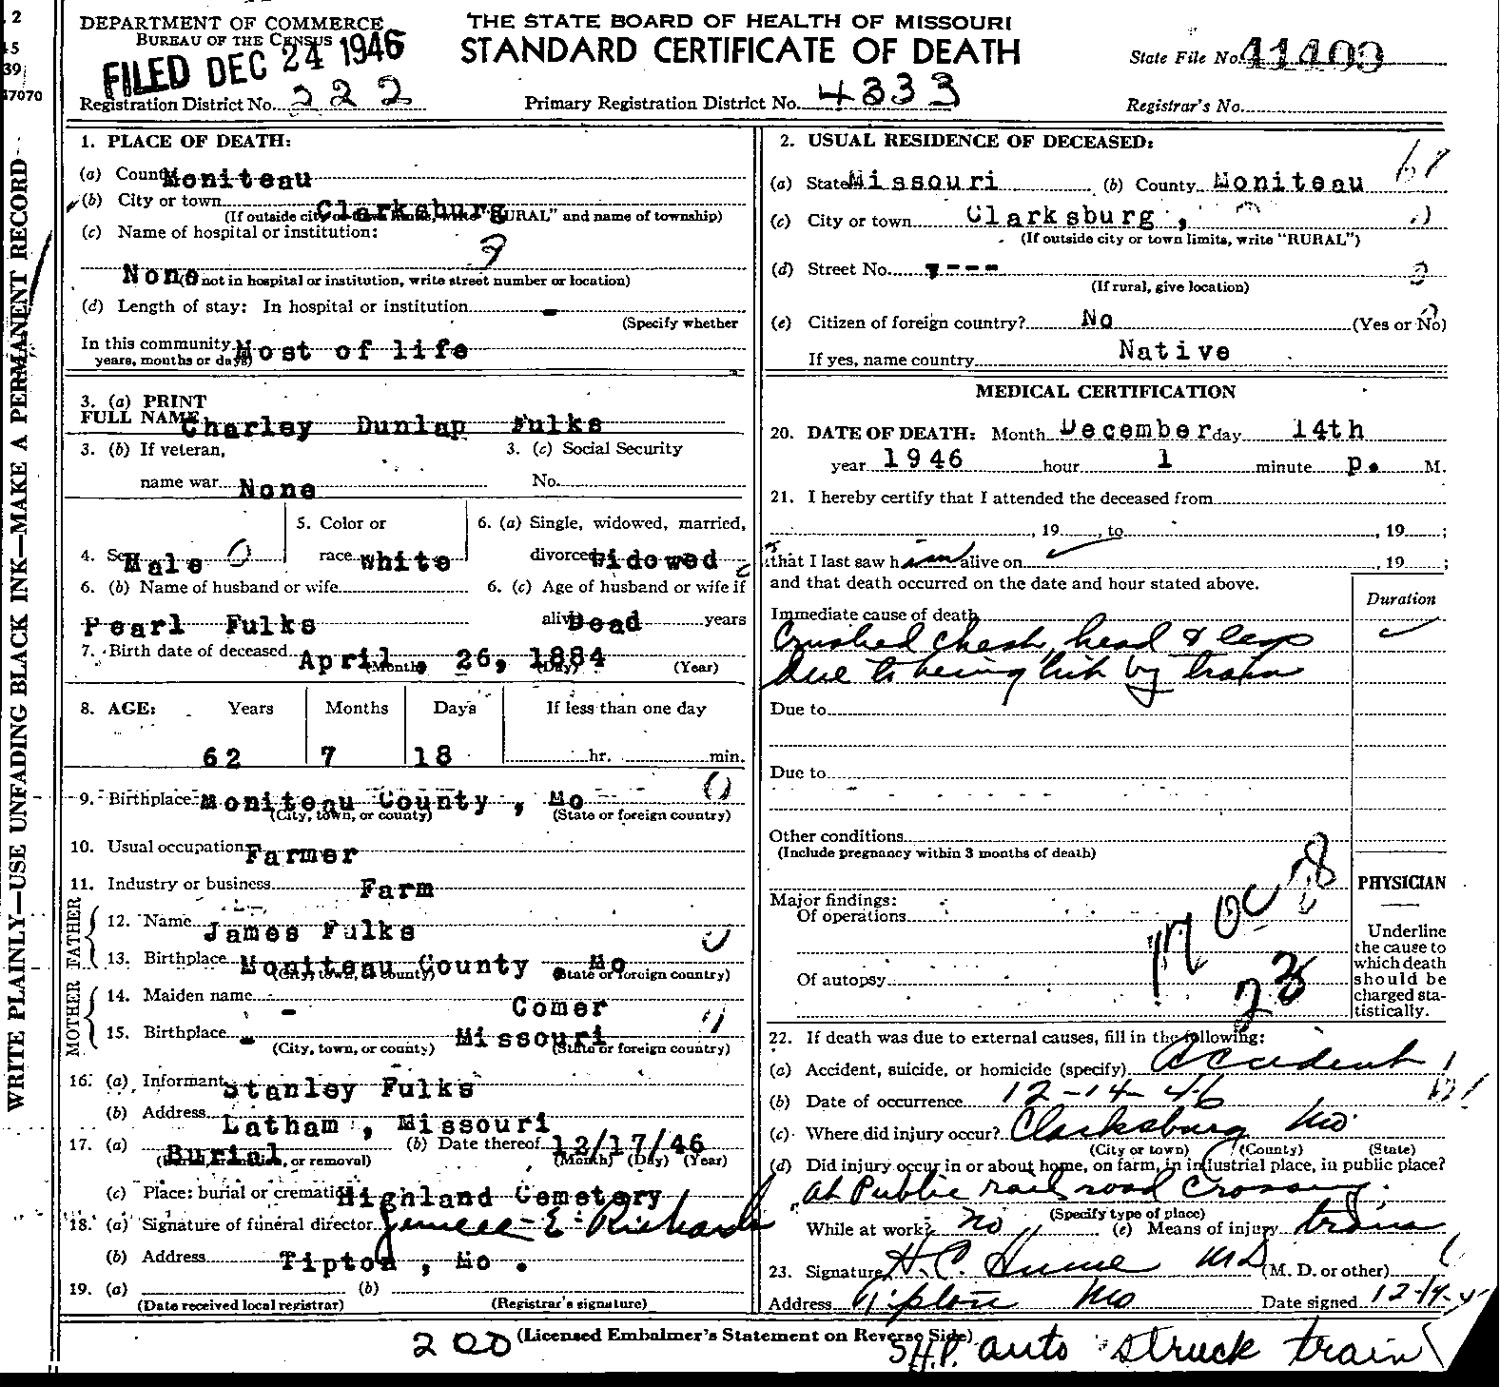 2
45
39
47070
WRITE PLAINLY—USE UNFADING BLACK INK—MAKE A PERMANENT RECORD
DEPARTMENT OF COMMERCE
BUREAU OF THE CENSUS
FILED DEC 24 1946
THE STATE BOARD OF HEALTH OF MISSOURI
STANDARD CERTIFICATE OF DEATH
State File No. 41409
Registration District No. 222
Primary Registration District No. 4333
Registrar's No.
1. PLACE OF DEATH:
(a) County Moniteau
(b) City or town Clarksburg
(If outside city or town limits, write "RURAL" and name of township)
(c) Name of hospital or institution:
None
(If not in hospital or institution, write street number or location)
(d) Length of stay: In hospital or institution -
(Specify whether
In this community Most of life
years, months or days)
2. USUAL RESIDENCE OF DECEASED:
(a) State Missouri (b) County Moniteau
(c) City or town Clarksburg,
(If outside city or town limits, write "RURAL")
(d) Street No. ----
(If rural, give location)
(e) Citizen of foreign country? No (Yes or No)
If yes, name country Native
3. (a) PRINT
FULL NAME Charley Dunlap Fulks
3. (b) If veteran,
name war None
3. (c) Social Security
No.
4. Sex Male
5. Color or
race White
6. (a) Single, widowed, married,
divorced Widowed
6. (b) Name of husband or wife
Pearl Fulks
6. (c) Age of husband or wife if
alive Dead years
7. Birth date of deceased April, 26, 1884
(Month) (Day) (Year)
8. AGE: Years Months Days If less than one day
62 7 18 hr. min.
9. Birthplace Moniteau County, Mo
(City, town, or county) (State or foreign country)
10. Usual occupation Farmer
11. Industry or business Farm
FATHER
12. Name James Fulks
13. Birthplace Moniteau County. Mo
(City, town, or county) (State or foreign country)
MOTHER
14. Maiden name - Comer
15. Birthplace - Missouri
(City, town, or county) (State or foreign country)
16. (a) Informant Stanley Fulks
(b) Address Latham, Missouri
17. (a) Burial (b) Date thereof 12/17/46
(Burial, cremation, or removal) (Month) (Day) (Year)
(c) Place: burial or cremation Highland Cemetery
18. (a) Signature of funeral director E. Richards
(b) Address Tipton, Mo.
19. (a) (b)
(Date received local registrar) (Registrar's signature)
MEDICAL CERTIFICATION
20. DATE OF DEATH: Month December day 14th
year 1946 hour 1 minute p. M.
21. I hereby certify that I attended the deceased from
, 19 , to , 19 ;
that I last saw him alive on , 19 ;
and that death occurred on the date and hour stated above.
Duration
Immediate cause of death
Crushed chest, head & legs
due to being hit by train
Due to
Due to
Other conditions
(Include pregnancy within 3 months of death)
Major findings:
Of operations
Of autopsy
PHYSICIAN
Underline
the cause to
which death
should be
charged sta-
tistically.
22. If death was due to external causes, fill in the following:
(a) Accident, suicide, or homicide (specify) Accident
(b) Date of occurrence 12-14-46
(c) Where did injury occur? Clarksburg Mo
(City or town) (County) (State)
(d) Did injury occur in or about home, on farm, in industrial place, in public place?
at Public rail road crossing.
(Specify type of place)
While at work? no (e) Means of injury train
23. Signature H. C. Hume MD (M. D. or other)
Address Tipton Mo Date signed 12-14-4
200 (Licensed Embalmer's Statement on Reverse Side)
S.H.P. auto struck train